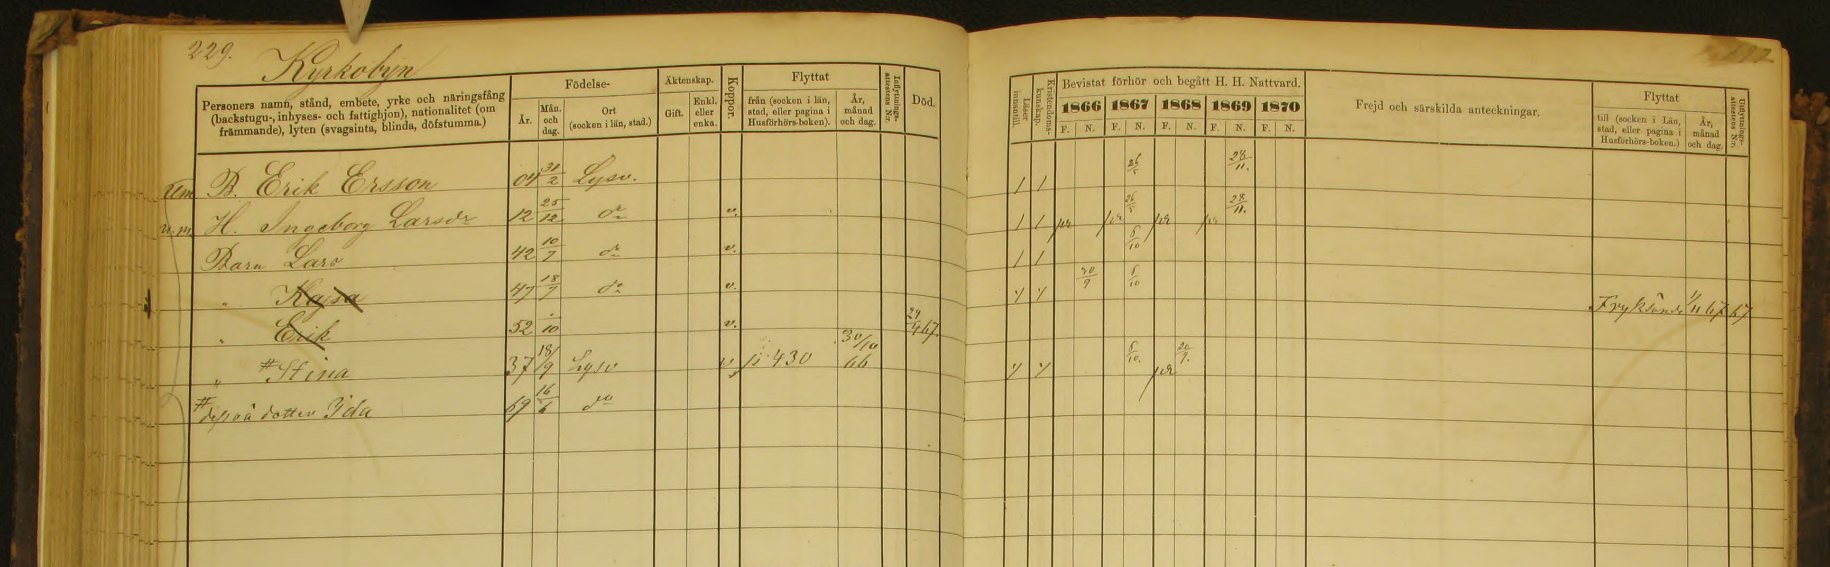 229.
Kyrkobyn
Personers namn, stånd, embete, yrke och näringsfång
(backstugu-, inhyses- och fattighjon), nationalitet (om
främmande), lyten (svagsinta, blinda, döfstumma.)
Födelse-
År.
Mån. och dag.
Ort
(socken i län, stad.)
Äktenskap.
Gift.
Enkl. eller enka.
Koppor.
Flyttat
från (socken i län,
stad, eller pagina i
Husförhörs-boken).
År,
månad
och dag.
Inflyttnings-attestens N:r.
Död.
Läser innantill.
Kristendoms-kunskap.
Bevistat förhör och begått H. H. Nattvard.
1866 1867 1868 1869 1870
F. N. F. N. F. N. F. N. F. N.
Frejd och särskilda anteckningar.
Flyttat
till (socken i Län,
stad, eller pagina i
Husförhörs-boken.)
År,
månad
och dag.
Utflyttnings-attestens N:r.
Um B. Erik Ersson 04 31/2 Lysv. 28/11.
u.m. H. Ingeborg Larsdr 12 25/12 do v. 28/11.
Barn Lars 42 10/7 do v. 6/10
" Kajsa 47 18/7 do v. 30/9 6/10 Fryksände 1/11 67 67
" Erik 52 /10 v. 29/4 67.
" # Stina 37 18/9 Lysv v p. 430 30/10 66 6/10. 20/9.
# dess oä dotter Ida 69 16/6 do